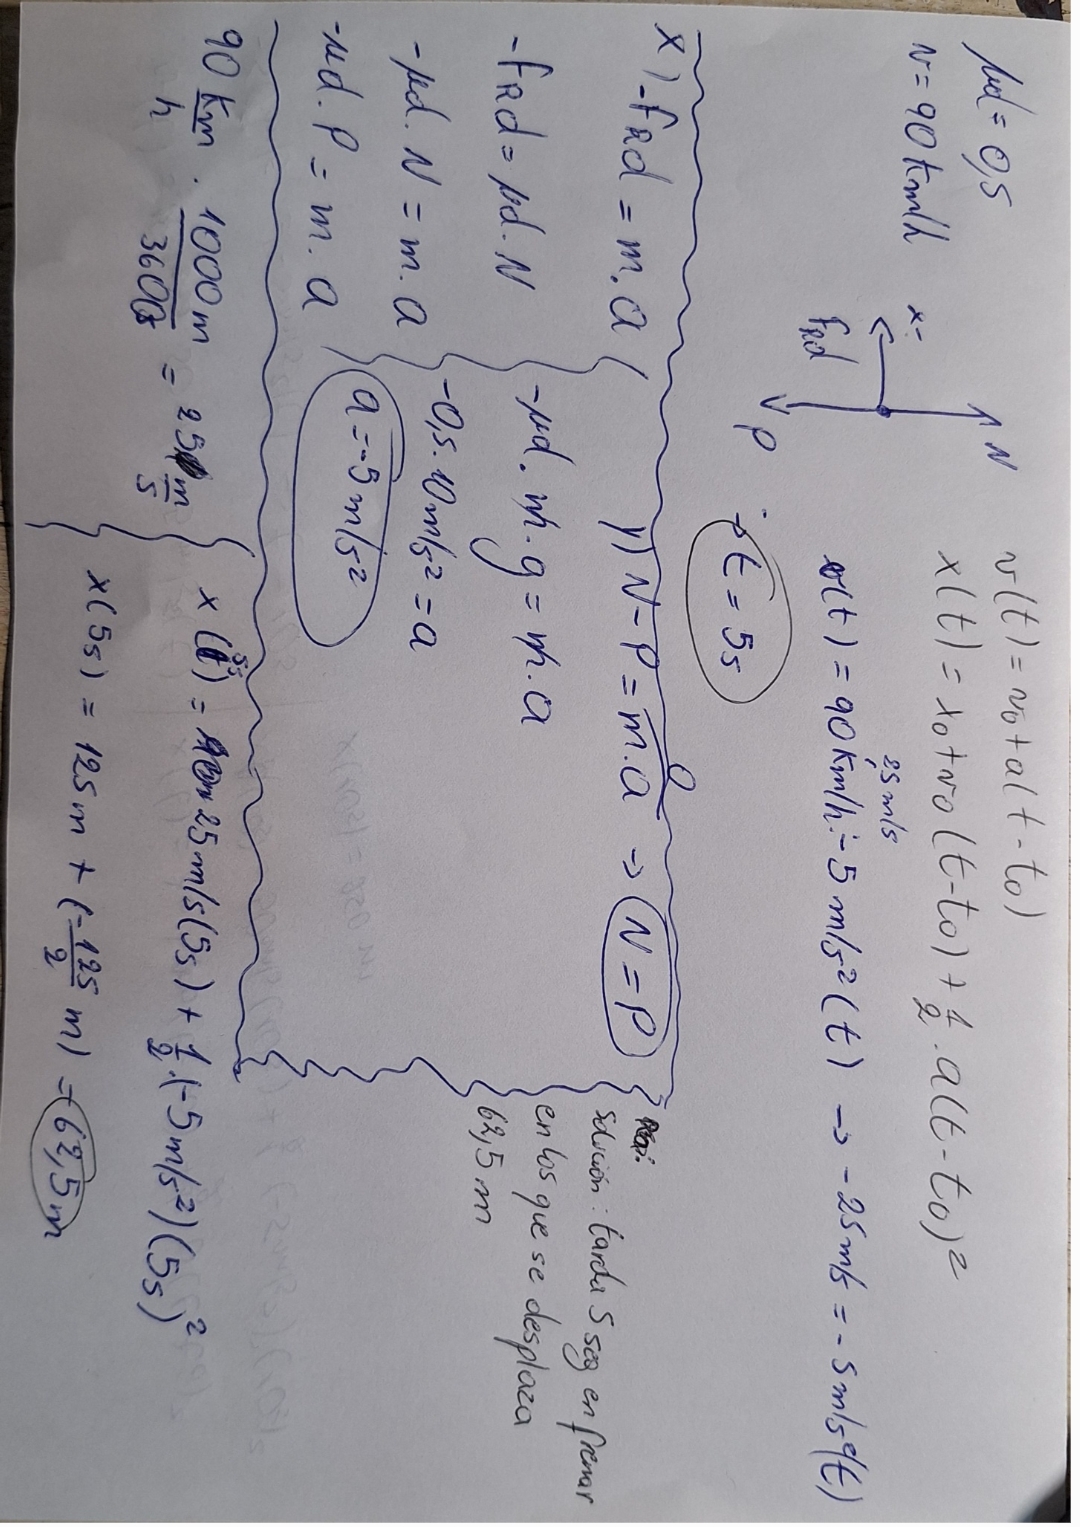 μd = 0,5
v = 90 km/h
x:
N
fRd
P
v(t) = v0 + a(t - t0)
x(t) = x0 + v0(t - t0) + 1/2 . a(t - t0)²
25 m/s
v(t) = 90 km/h - 5 m/s²(t) → -25 m/s = -5 m/s²(t)
t = 5s
x) -fRd = m.a
-fRd = μd.N
-μd.N = m.a
-μd.P = m.a
y) N - P = m.a → N = P
0
-μd.m.g = m.a
-0,5.10 m/s² = a
a = -5 m/s²
solución: tarda 5 seg en frenar
en los que se desplaza
62,5 m
90 km/h . 1000m/3600s = 25 m/s
x(5s) = 25 m/s(5s) + 1/2.(-5 m/s²)(5s)²
x(5s) = 125 m + (-125/2 m) = 62,5 m